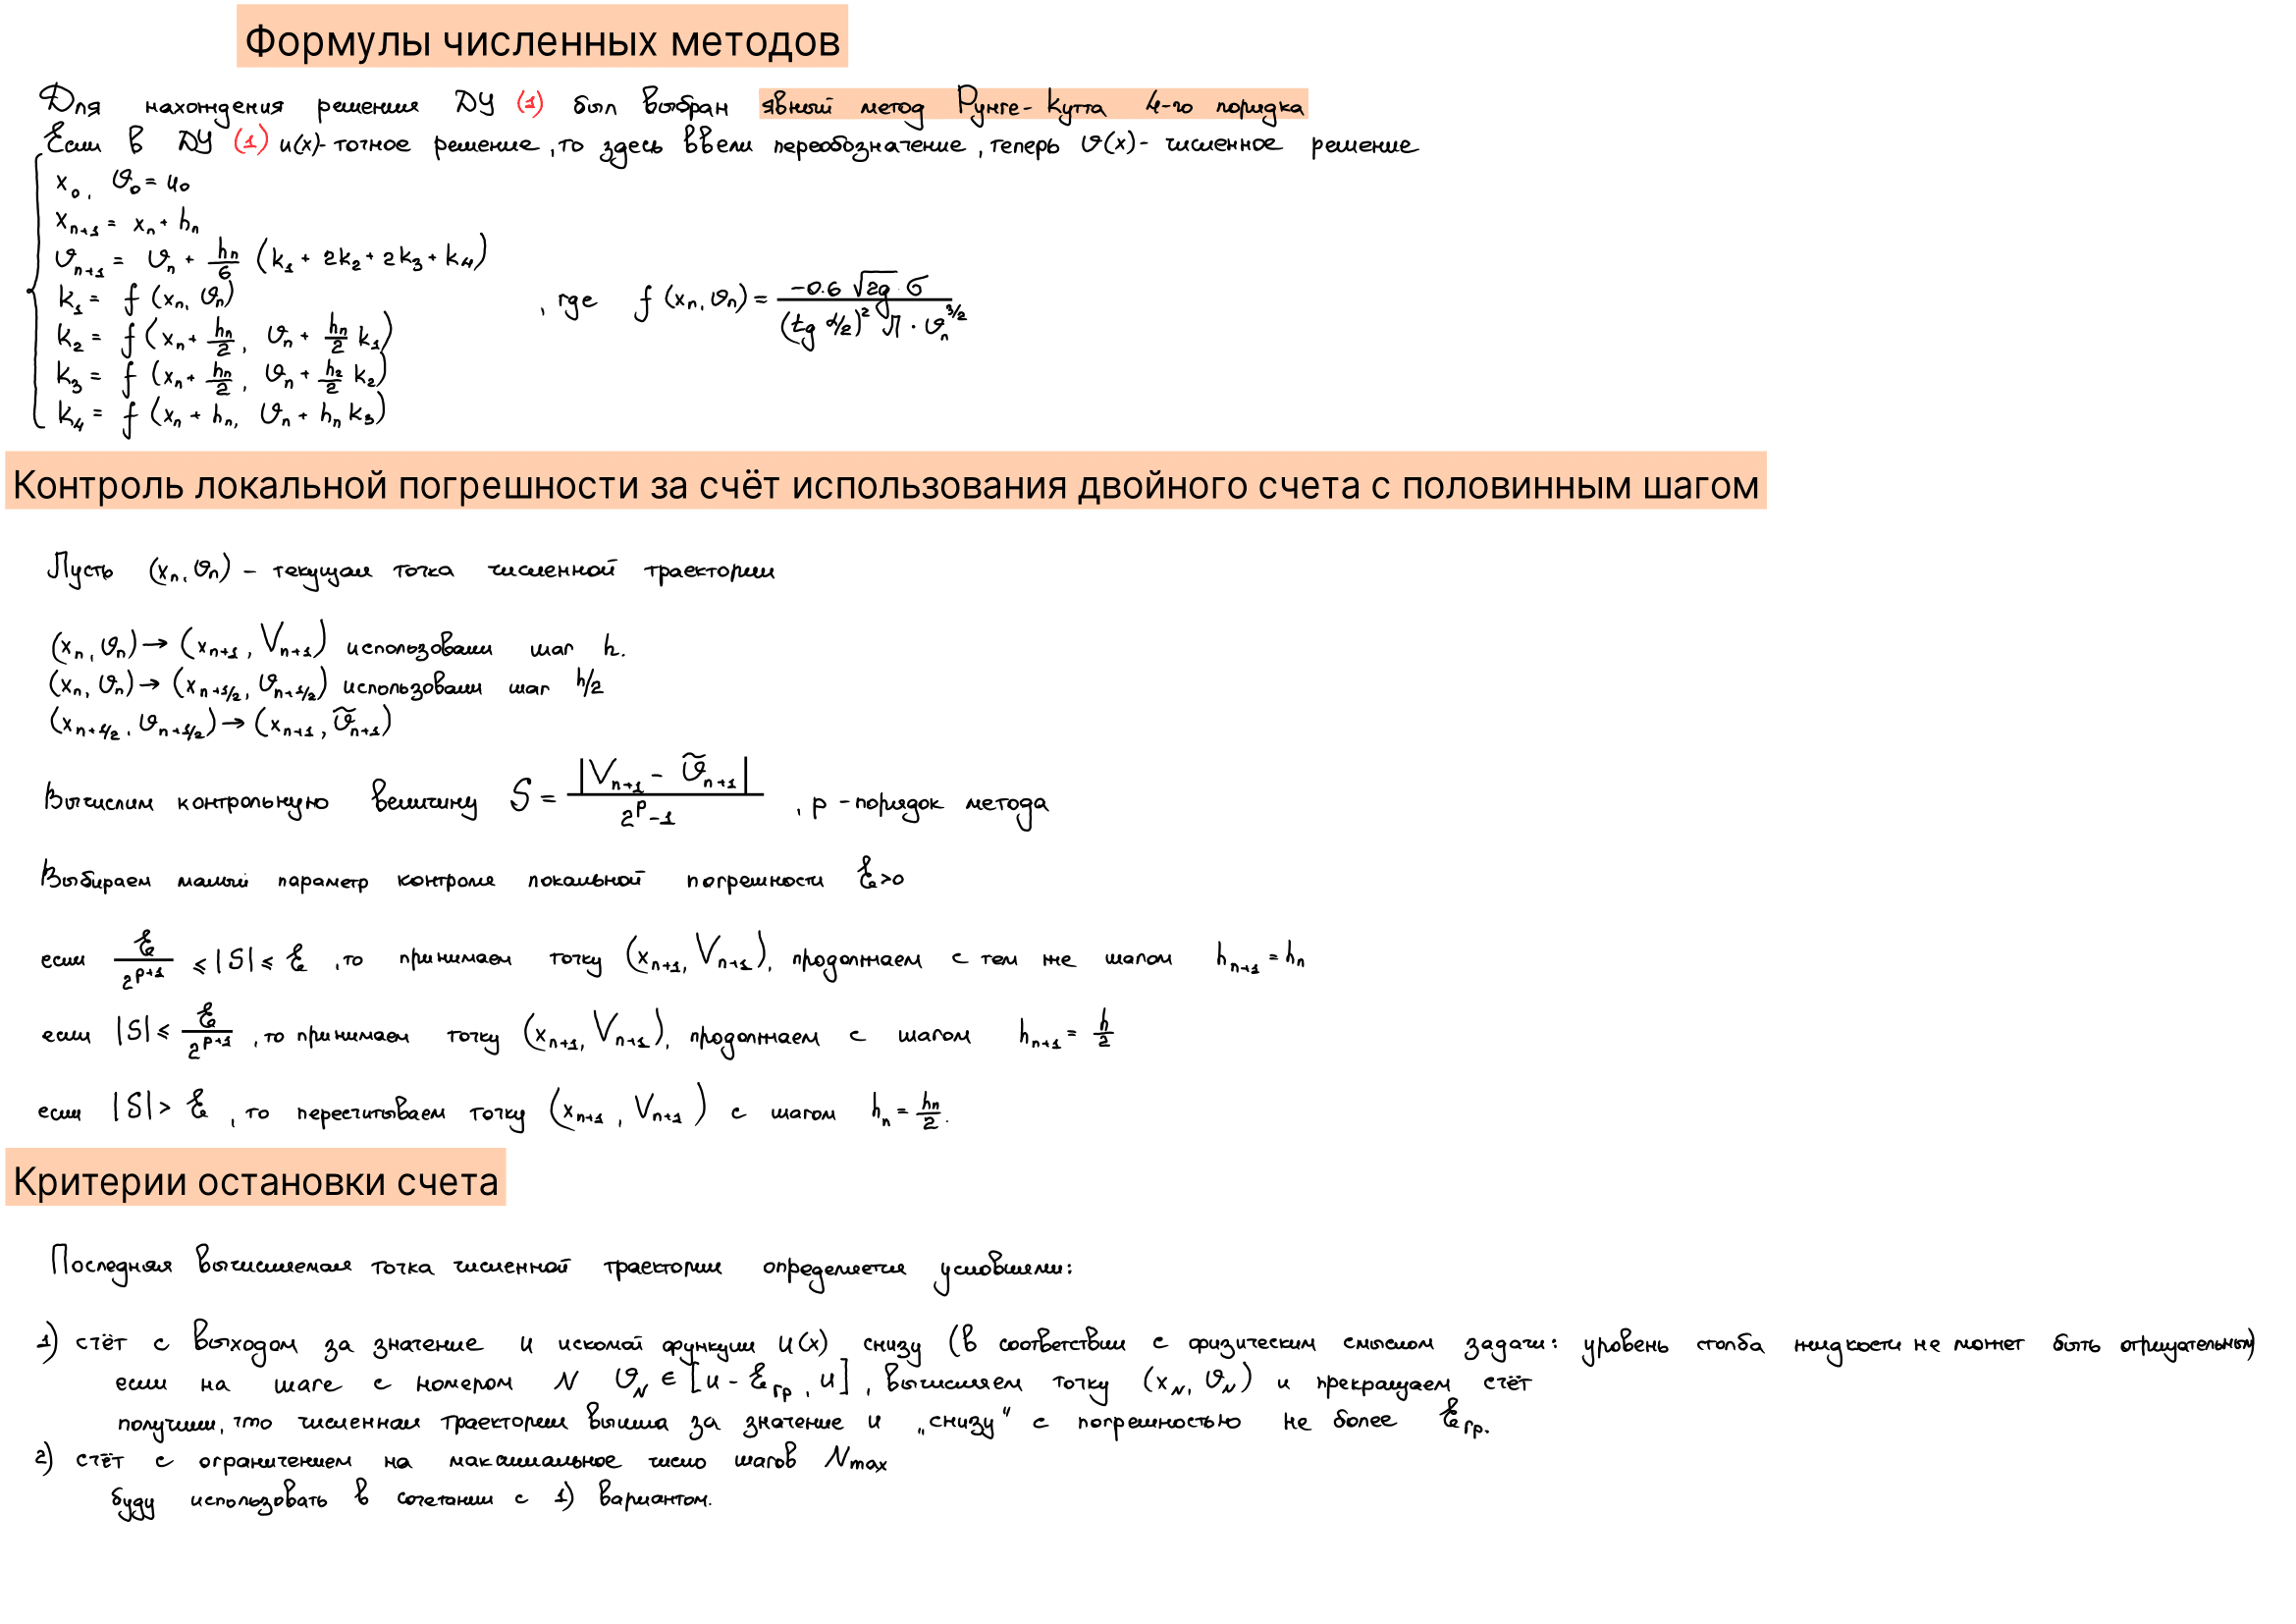 Формулы численных методов
Для нахождения решения ДУ (1) был выбран явный метод Рунге-Кутта 4-го порядка
Если в ДУ (1) u(x)- точное решение, то здесь ввели переобозначение, теперь υ(x)- численное решение
x₀, υ₀ = u₀
xₙ₊₁ = xₙ + hₙ
υₙ₊₁ = υₙ + hₙ/6 (k₁ + 2k₂ + 2k₃ + k₄)
k₁ = f (xₙ, υₙ) , где f (xₙ, υₙ) = -0.6 √2g · σ / (tg α/2)² π · υₙ^3/2
k₂ = f (xₙ + hₙ/2, υₙ + hₙ/2 k₁)
k₃ = f (xₙ + hₙ/2, υₙ + h₂/2 k₂)
k₄ = f (xₙ + hₙ, υₙ + hₙ k₃)
Контроль локальной погрешности за счёт использования двойного счета с половинным шагом
Пусть (xₙ, υₙ) – текущая точка численной траектории
(xₙ, υₙ) → (xₙ₊₁, Vₙ₊₁) использовали шаг h.
(xₙ, υₙ) → (xₙ₊₁/₂, υₙ₊₁/₂) использовали шаг h/2
(xₙ₊₁/₂, υₙ₊₁/₂) → (xₙ₊₁, υ̃ₙ₊₁)
Вычислим контрольную величину S = |Vₙ₊₁ - υ̃ₙ₊₁| / 2^p - 1 , p - порядок метода
Выбираем малый параметр контроля локальной погрешности ε > 0
если ε/2^p+1 ≤ |S| ≤ ε , то принимаем точку (xₙ₊₁, Vₙ₊₁), продолжаем с тем же шагом hₙ₊₁ = hₙ
если |S| ≤ ε/2^p+1 , то принимаем точку (xₙ₊₁, Vₙ₊₁), продолжаем с шагом hₙ₊₁ = h/2
если |S| > ε , то пересчитываем точку (xₙ₊₁, Vₙ₊₁) с шагом hₙ = hₙ/2.
Критерии остановки счета
Последняя вычисляемая точка численной траектории определяется условиями:
1) счёт с выходом за значение u искомой функции u(x) снизу (в соответствии с физическим смыслом задачи: уровень столба жидкости не может быть отрицательным)
если на шаге с номером N υ_N ∈ [u - ε_гр, u], вычисляем точку (x_N, υ_N) и прекращаем счёт
получили, что численная траектория вышла за значение u „снизу" с погрешностью не более ε_гр.
2) счёт с ограничением на максимальное число шагов Nmax
буду использовать в сочетании с 1) вариантом.